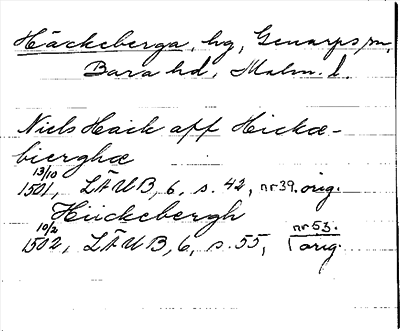 Häckeberga, hg, Genarps sn,
Bara hd, Malm. l.
Niels Hack aff Hickæ-
bierghæ
13/10
1501, LÄUB, 6, s. 42, nr 39. orig.
Hückebergh
10/2
1502, LÄUB, 6, s. 55, nr 53. orig.